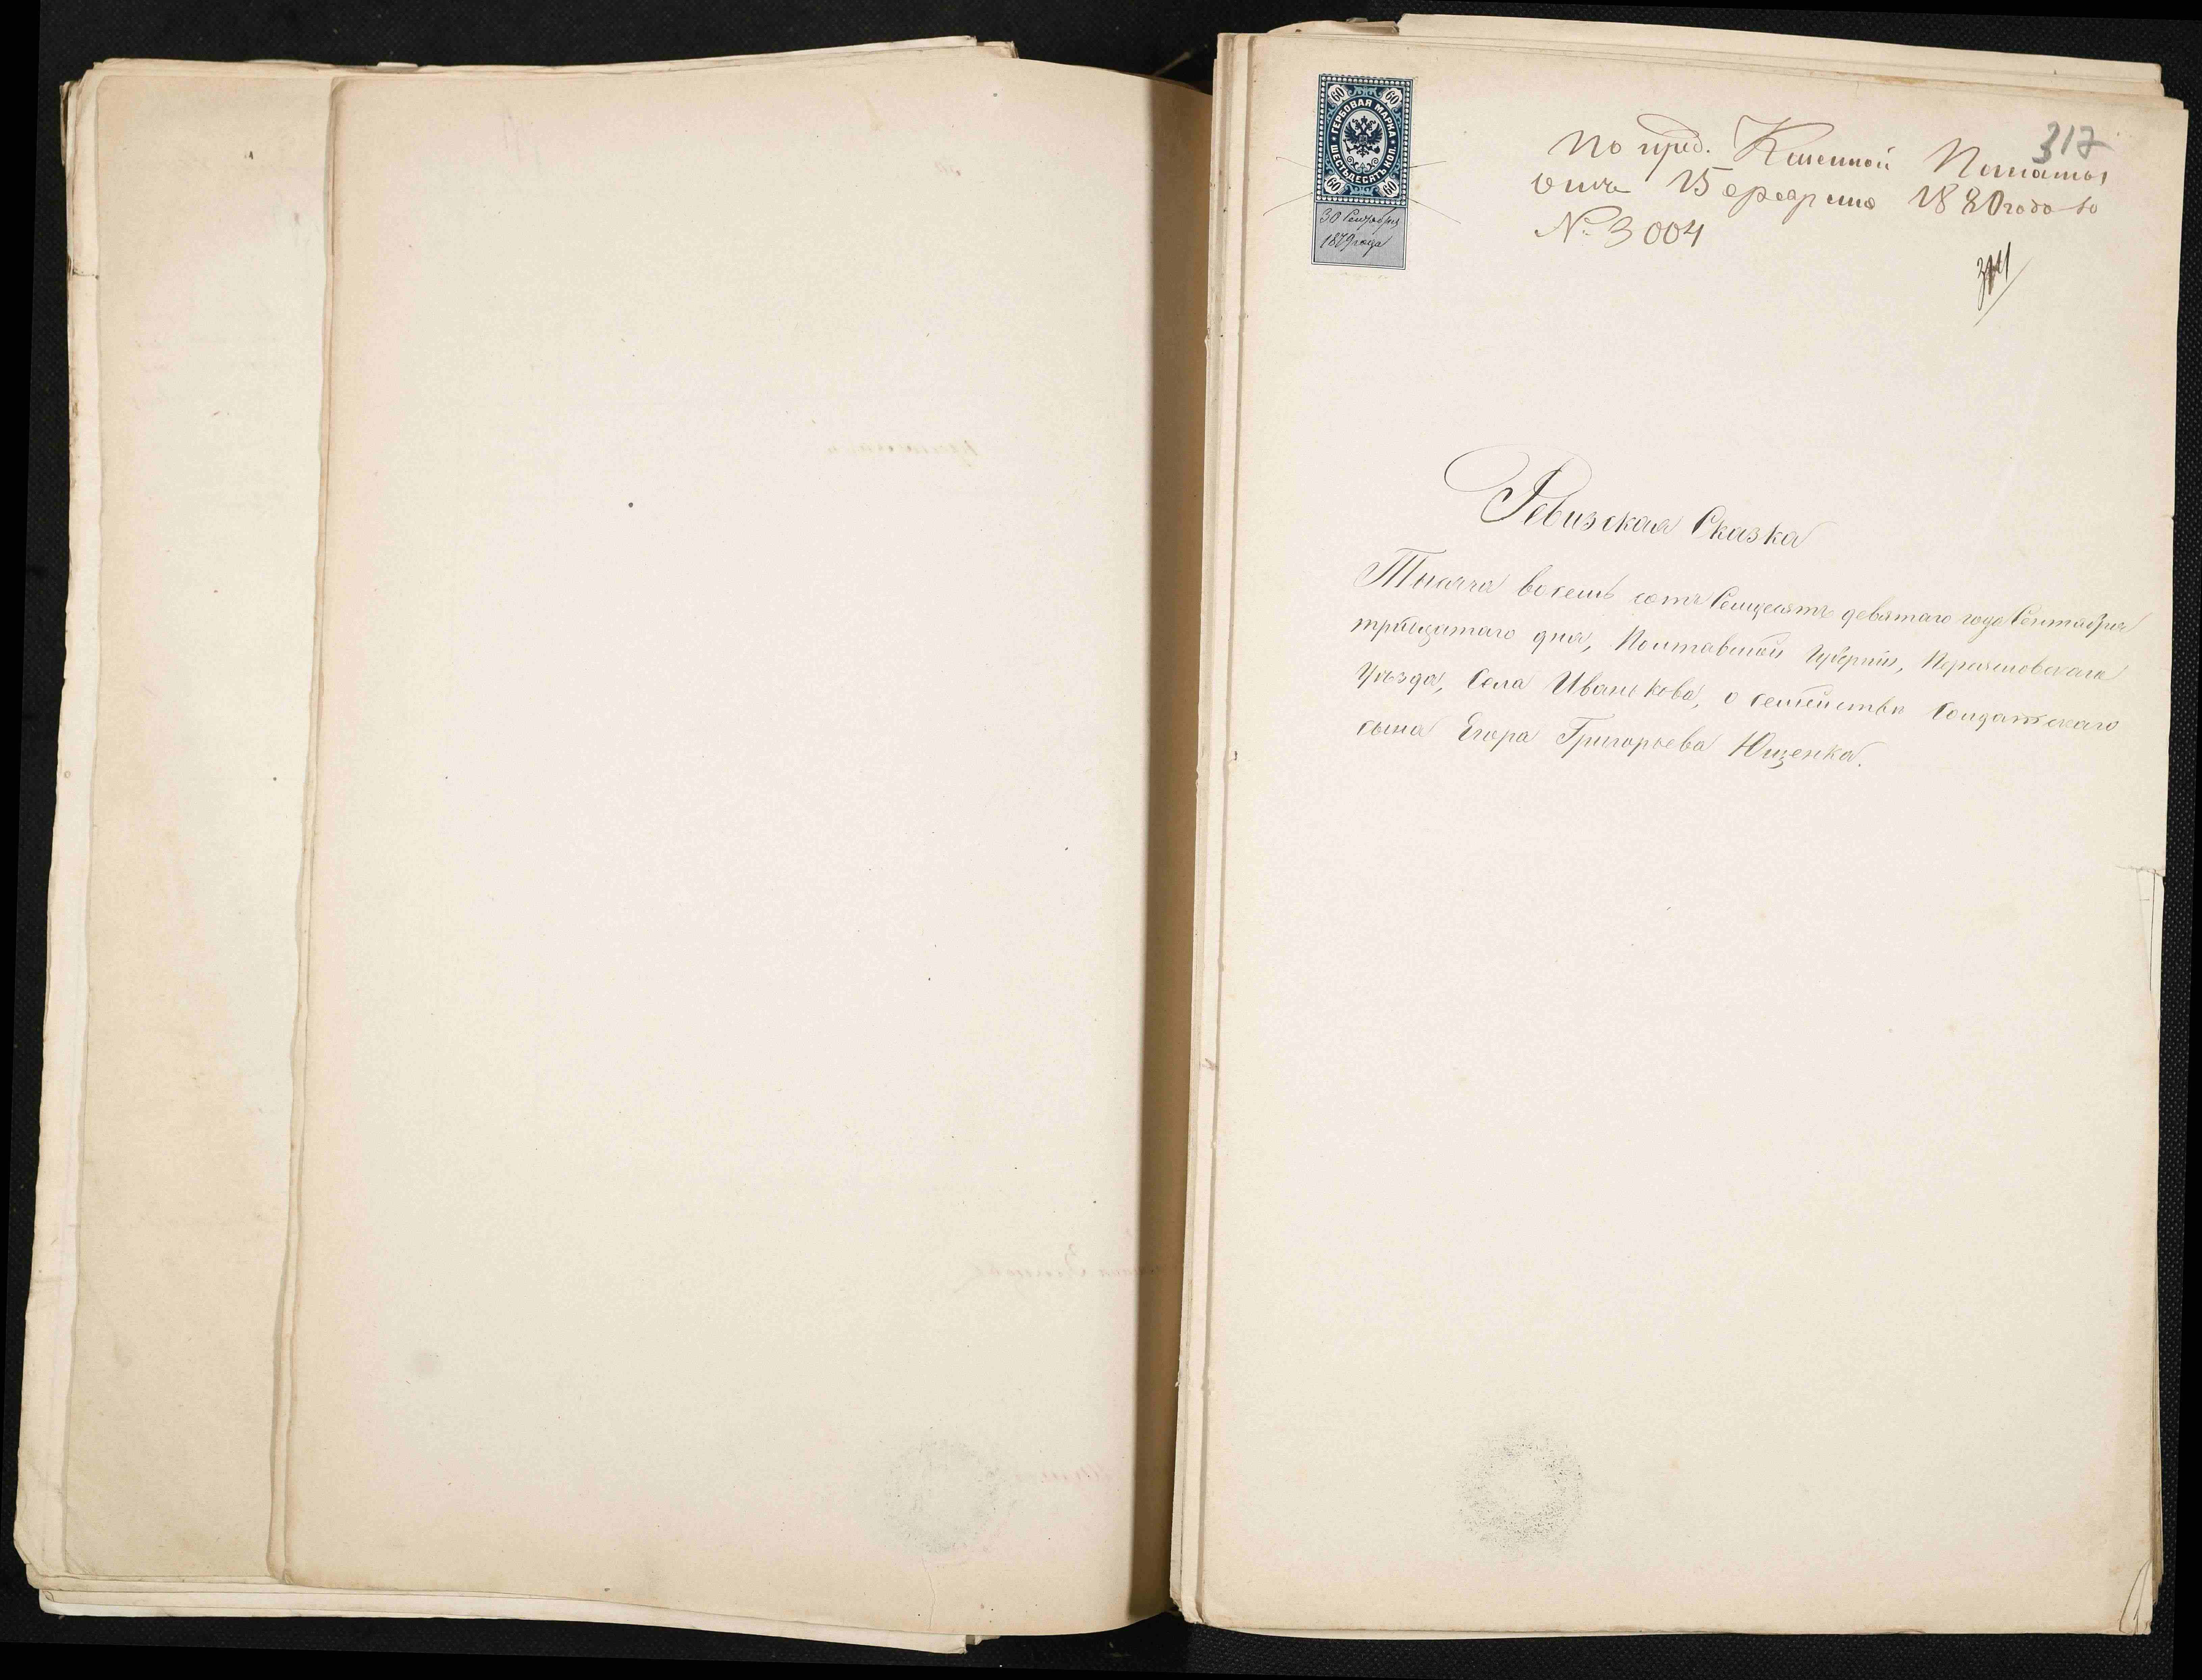 60 60
ГЕРБОВАЯ МАРКА
ШЕСТЬДЕСЯТЪ КОП.
60 60
30 Сентября
1879 года
317
По пред. Казенной Палаты
отъ 15 февраля 1880 года за
№ 3004
Ревизская Сказка
Тысяча восемь сотъ Семдесятъ девятаго года Сентября
тридцатаго дня, Полтавской Губерніи, Переяславскаго
Уѣзда, Села Иванькова, о семействѣ Солдатскаго
сына Егора Григорьева Ющенка.